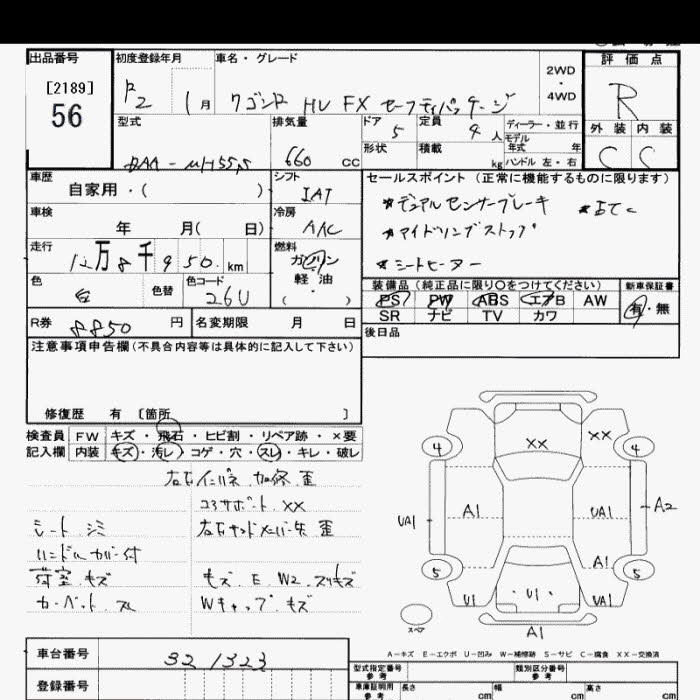 出品番号
[2189]
56
初度登録年月
R2 1月
車名・グレード
ワゴンR HV FX セーフティパッケージ
2WD
・
4WD
評価点
R
外装 内装
C C
型式
DAA - MH55S
排気量
660 cc
ドア 5
定員 4人
形状
積載 kg
ディーラー・並行
モデル
年式 年
ハンドル 左・右
車歴
自家用・( )
シフト
IAT
車検
年 月( 日)
冷房
AAC
走行
12万8千950 km
燃料
ガソリン
・
軽油
( ・ )
色
白
色替
色コード
26U
セールスポイント(正常に機能するものに限ります)
★デュアルセンサーブレーキ ★ETC
★アイドリングストップ
★シートヒーター
装備品(純正品に限り○をつけてください)
PS PW ABS エアB AW
SR ナビ TV カワ
新車保証書
有・無
R券 8850 円
名変期限 月 日
後日品
注意事項申告欄(不具合内容等は具体的に記入して下さい)
修復歴 有 〔箇所 〕
検査員 FW キズ・飛石・ヒビ割・リペア跡・×要
記入欄 内装 キズ・汚レ・コゲ・穴・スレ・キレ・破レ
左右インパネ 加修 歪
コアサポート XX
シート シミ
左右サイドメンバー先 歪
ハンドルカバー付
荷室 キズ
キズ E W2 スリキズ
カーペット スレ
Wキャップ キズ
XX
XX
4
4
A1
UA1
UA1
A2
A1
5
5
U1
U1
UA1
スペア
A1
A-キズ E-エクボ U-凹み W-補修跡 S-サビ C-腐食 XX-交換済
車台番号
321323
登録番号
型式指定番号
参考
類別区分番号
参考
車庫証明用
参考
長さ cm
幅 cm
高さ cm